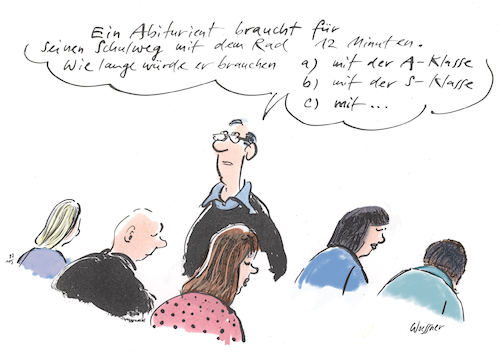 Ein Abiturient braucht für
seinen Schulweg mit dem Rad 12 Minuten.
Wie lange würde er brauchen a) mit der A-Klasse
b) mit der S-Klasse
c) mit...
Wüffner